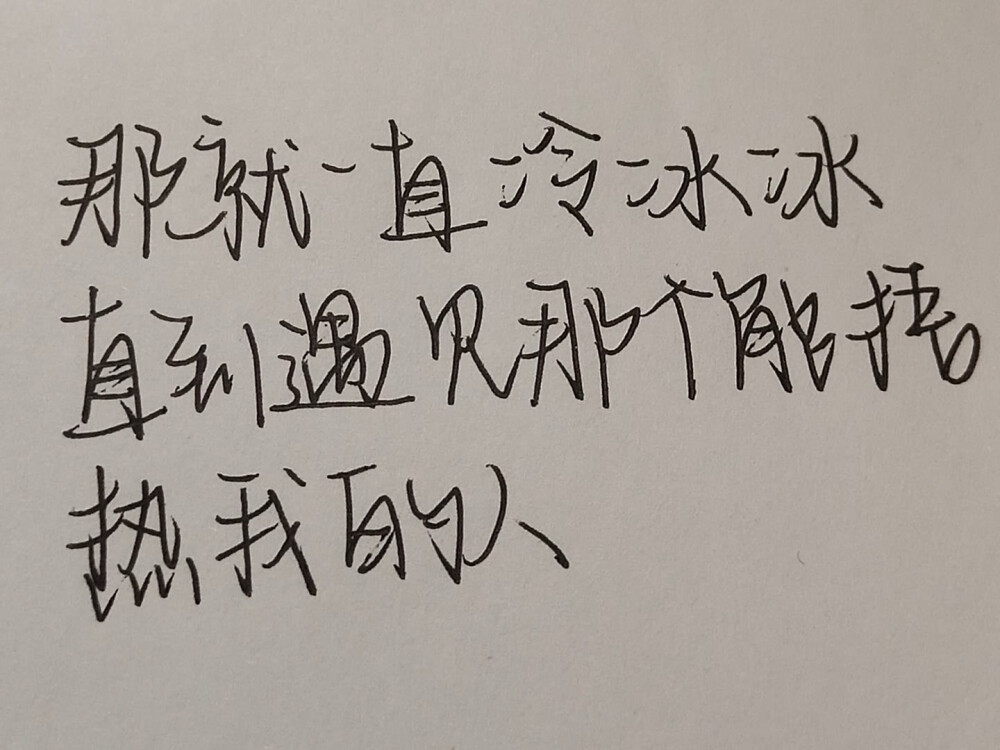 那就一直冷冰冰
直到遇见那个能捂
热我的人